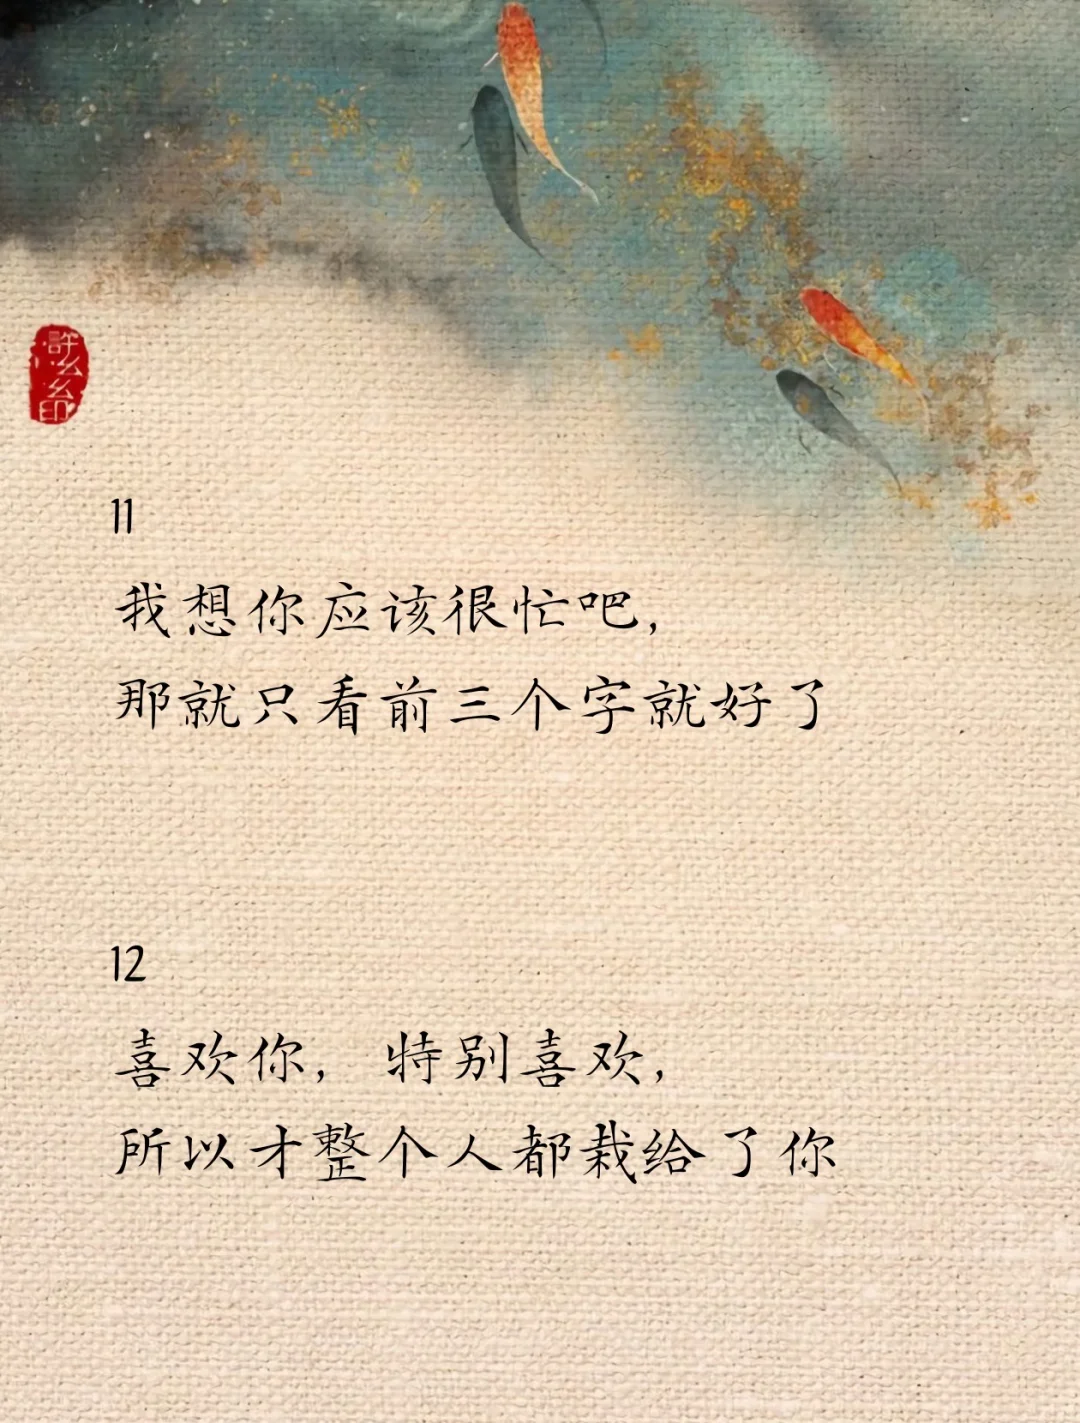 11
我想你应该很忙吧，
那就只看前三个字就好了
12
喜欢你，特别喜欢，
所以才整个人都栽给了你